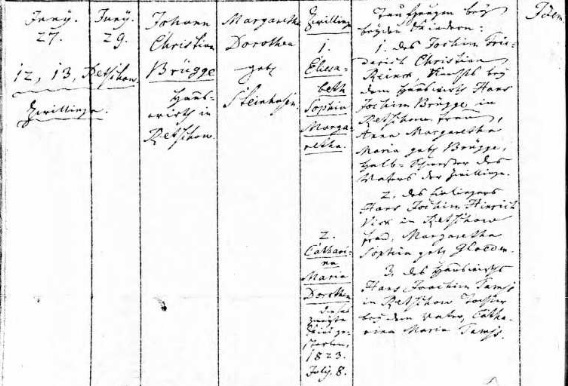 Juny. 27.
12, 13,
Zwillinge.
Juny. 29.
Retschow.
Johann
Christian
Brügge
Haus-
wirth in
Retschow.
Margaretha
Dorothea
geb.
Steinhagen.
Zwillinge
1.
Elisa-
beth
Sophia
Marga-
retha.
2.
Catharina
Maria
Dorothea
1823.
July. 8.
Taufzeugen bey
beyden Kindern:
1. des Jochim Frie-
derich Christian
Knecht bey
dem Hauswirth Hans
Jochim Brügge in
Retschow Frau,
Anna Margaretha
Maria geb. Brügge,
Halb-Schwester des
Vaters der Zwillinge.
2. des
Hans Jochim Hinrich
in Retschow
Frau, Margaretha
Sophia geb.
3. des Hauswirths
Hans Joachim
in Retschow Tochter
bey dem Vater, Catha-
rina Maria
Idem